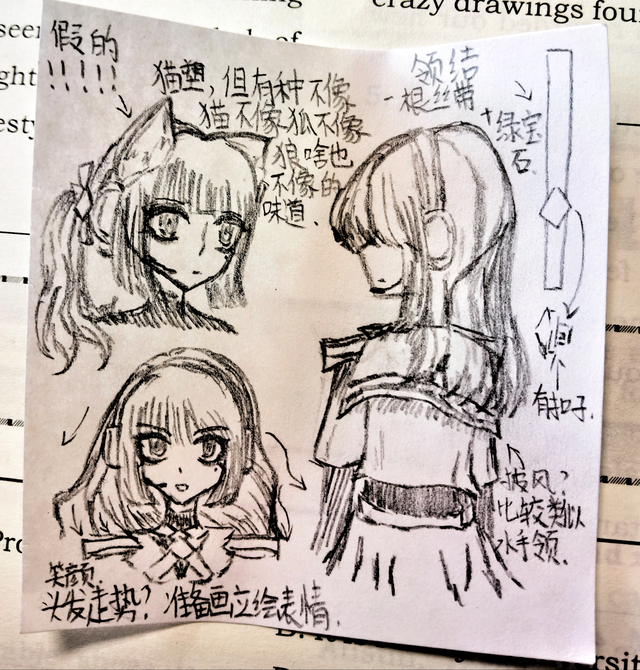 crazy drawings fou
假的
!!!!!
猫塑，但有种不像
猫不像狐不像
狼啥也
不像的
味道.
领结
一根丝带
+绿宝
石.
有扣子.
披风?
比较类似
水手领.
笑颜.
头发走势? 准备画立绘表情.